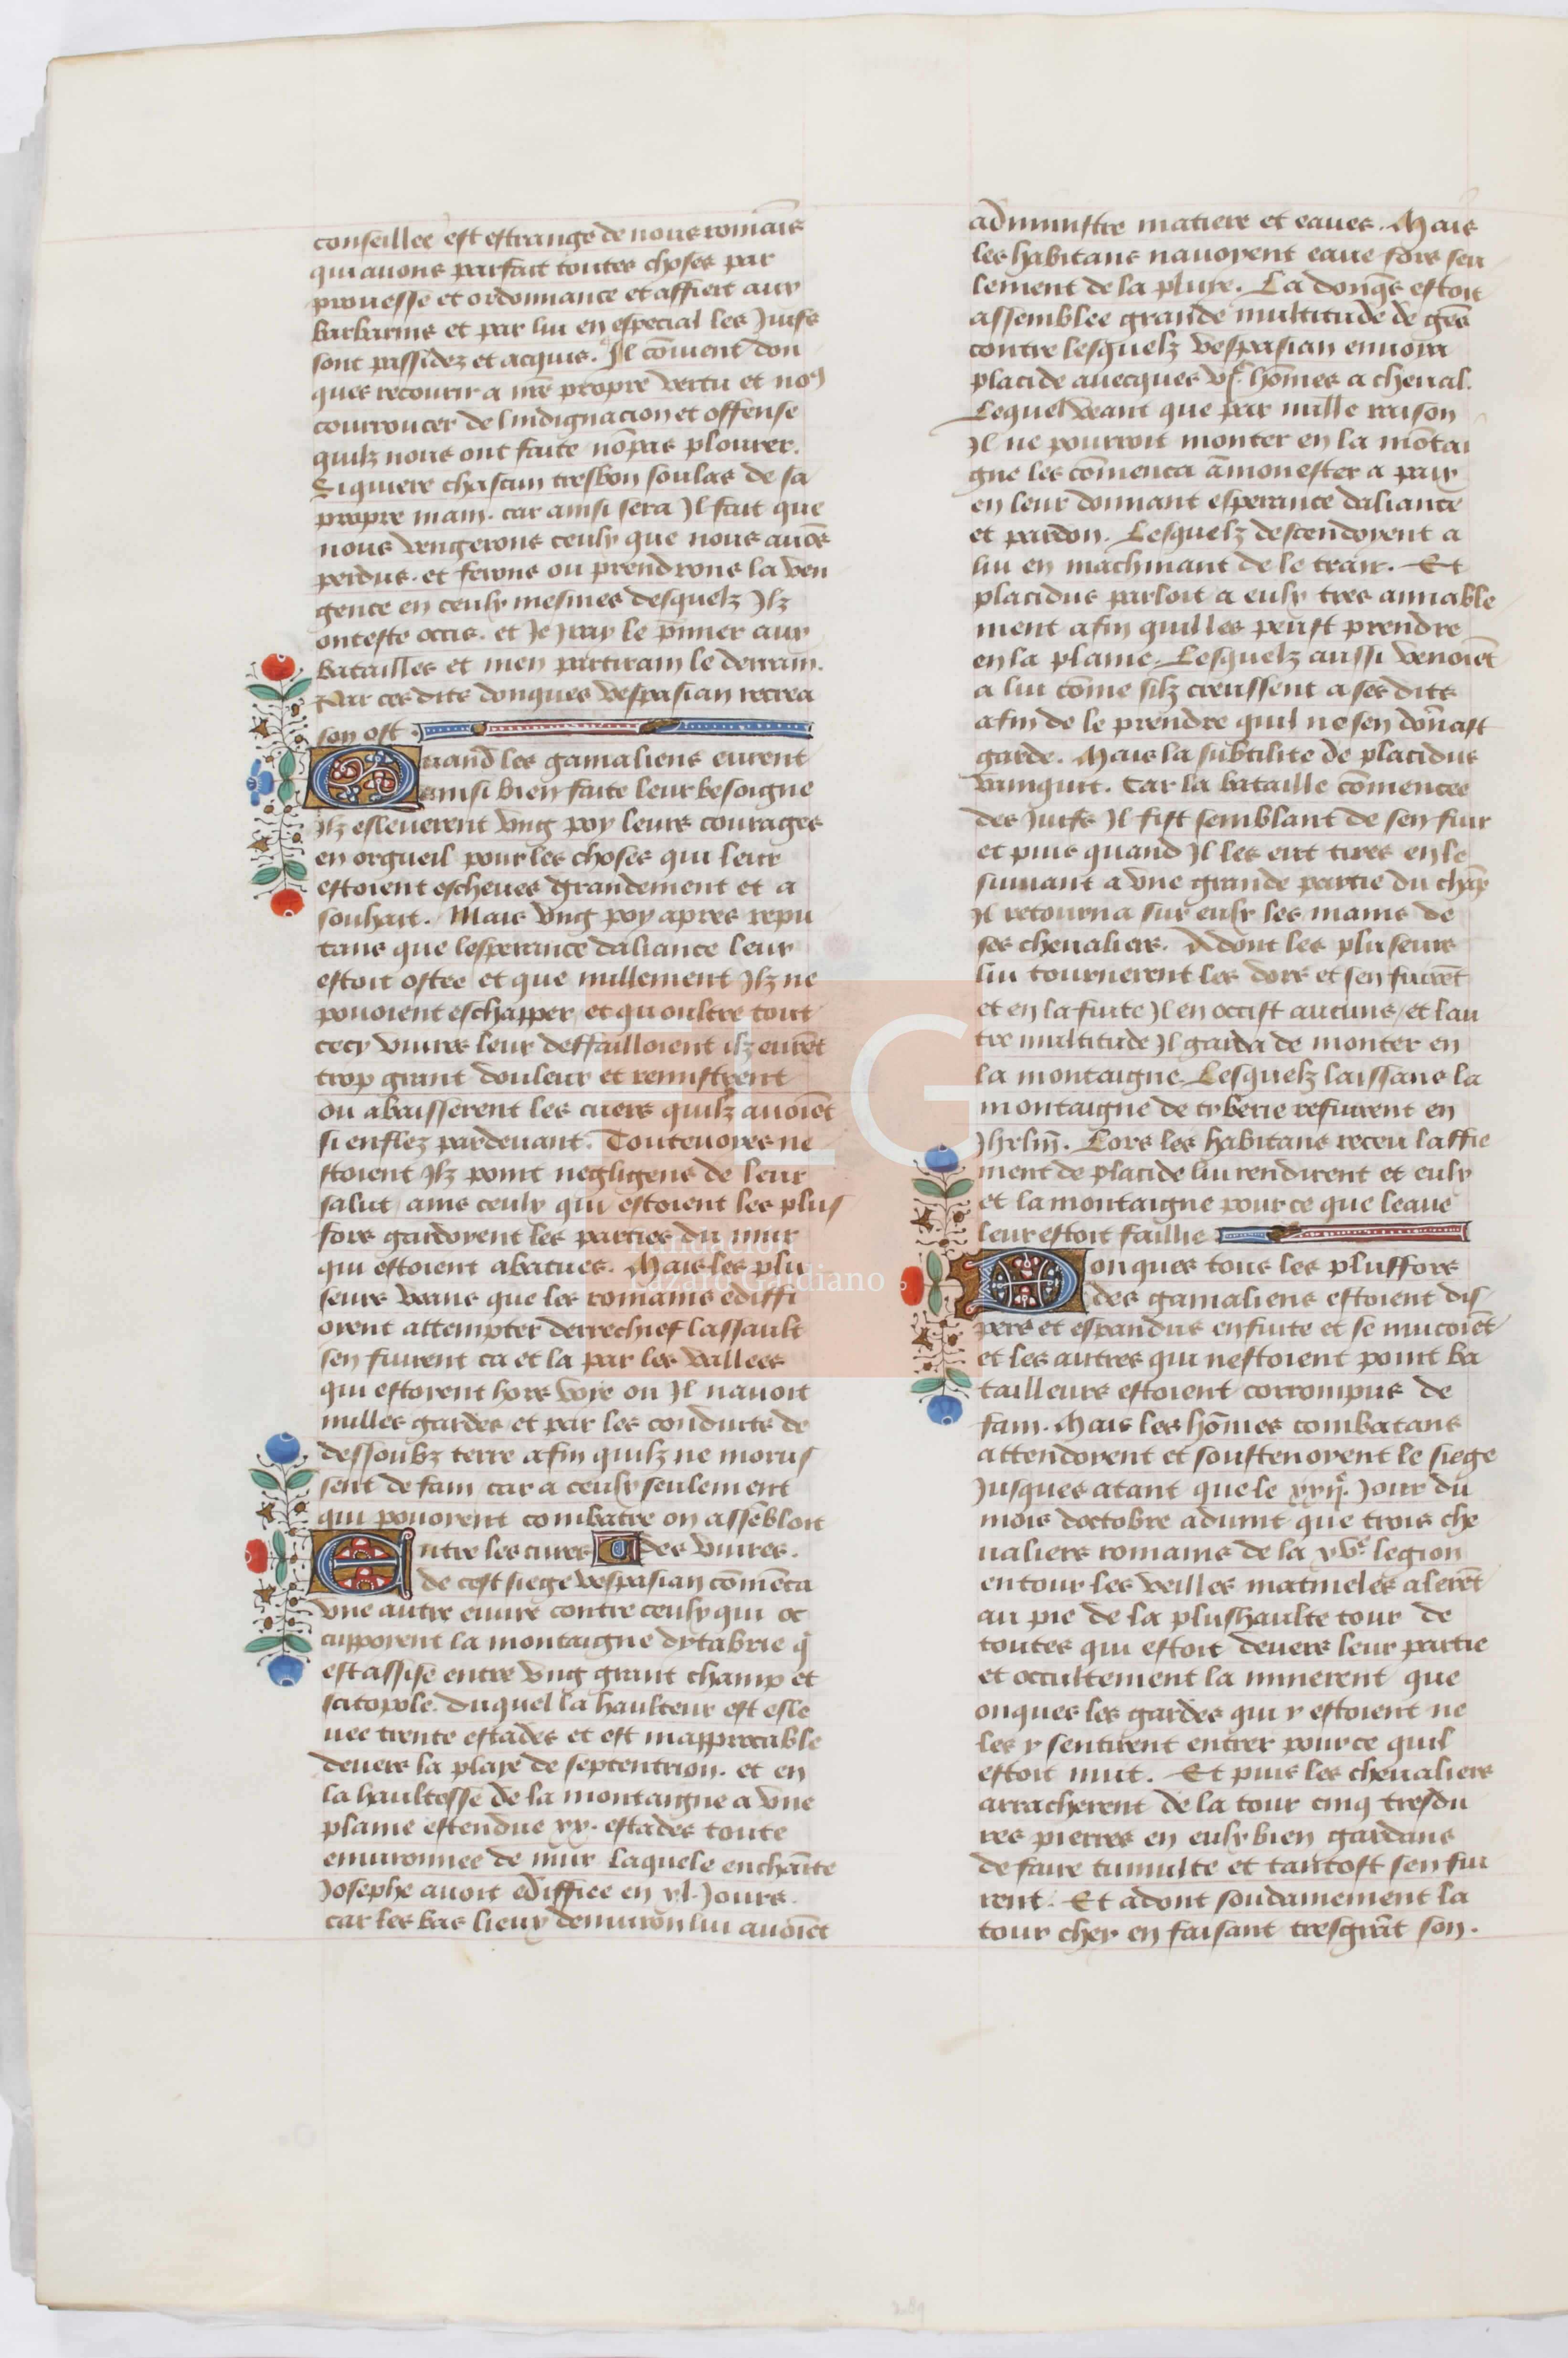 conseillee est estrange de nous romaīs
qui auons parfait toutes choses par
prouesse et ordonnance et affiert aux
barbarins et par lui en especial les Juifs
sont passidez et acquis. Il cōuient don
ques recourir a nrē propre vertu et no9
courroucer de lindignacion et offense
quilz nous ont faite nō pas plourer.
Si quiere chascun tresbon soulas de sa
propre main. car ainsi sera Il fait que
nous vengerons ceulx que nous auōs
perdus. et ferons ou prendrons la ven
gence en ceulx mesmes desquelz Ilz
ont este occis. et Je Jray le p̄mier aux
batailles et men partiray le derrain.
Par ces dits donques vespasian recrea
son ost.
Quand les gamaliens eurent
ainsi bien faite leur besoigne
Ilz esleuerent vng poy leurs courages
en orgueil pour les choses qui leur
estoient escheues grandement et a
souhait. Mais vng poy apres repu
tans que lesperance daliance leur
estoit ostee et que nullement Ilz ne
pouoient eschapper et qu oultre tout
cecy viures leur deffailloient ilz eurēt
trop grant douleur et remistrent
ou abaisserent les cuers quilz auoiēt
si enflez pardeuant. Touteuoyes ne
stoient Ilz point negligens de leur
salut ains ceulx qui estoient les plus
fors gardoyent les parties du mur
qui estoient abatues. Mais les plu
seurs veans que les romains ediffi
oyent attempter derrechief lassault
sen fuirent ca et la par les vallees
qui estoyent hors voye ou Il nauoit
nulles gardes et par les conduits de
dessoubz terre afin quilz ne morus
sent de fain car a ceulx seulement
qui pouoyent combatre on assēbloit
Entre les cures des viures.
de cest siege vespasian cōmēca
vne autre euure contre ceulx qui oc
cuppoyent la montaigne dytabrie q̄
est assise entre vng grant champ et
scitopole. duquel la haulteur est esle
uee trente estades et est inapprocable
deuers la playe de septentrion. et en
la haultesse de la montaigne a vne
plaine estendue xx. estades toute
enuironnee de mur laquele enchāte
Josephe auoit ediffiee en xl. Jours.
car les bas lieux denuirōn lui auoiēt
administre matiere et eaues. Mais
les habitans nauoyent eaue fors seu
lement de la pluye. La donq̄s estoit
assemblee grande multitude de gēs
contre lesquelz vespasian enuoia
placide auecques vjc hōmes a cheual.
Lequel veant que par nulle raison
Il ne pourroit monter en la mōtai
gne les cōmenca āmonester a paix
en leur donnant esperance daliance
et pardon. Lesquelz descendoyent a
lui en machinant de le trair. Et
placidus parloit a eulx tres amiable
ment afin quil les peust prendre
en la plaine. Lesquelz aussi venoiēt
a lui cōme silz creussent a ses dits
afin de le prendre quil ne sen dōnast
garde. Mais la subtilite de placidus
vainquit. Car la bataille cōmencee
des Juifs Il fist semblant de sen fuir
et puis quand Il les eut tires en le
suiuant a vne grande partie du chāp
Il retourna sur eulx les mains de
ses cheualiers. Adont les pluseurs
lui tournerent les dors et sen fuirēt
et en la fuite Il en occist aucuns et lau
tre multitude Il garda de monter en
la montaigne. Lesquelz laissans la
montaigne de tyberie refuirent en
Jhrlm̄. Lors les habitans receu laffie
ment de placide lui rendirent et eulx
et la montaigne pour ce que leaue
leur estoit faillie
Donques tous les plus fors
des gamaliens estoient dis
pers et espandus en fuite et se mucoiēt
et les autres qui nestoient point ba
tailleurs estoient corrompus de
fain. Mais les hōmes combatans
attendoyent et soustenoyent le siege
Jusques atant que le xxije. Jour du
mois doctobre aduint que trois che
ualiers romains de la xve legion
entour les veilles matineles alerēt
au pie de la plus haulte tour de
toutes qui estoit deuers leur partie
et occultement la minerent que
onques les gardes qui y estoient ne
les y sentirent entrer pource quil
estoit nuit. Et puis les cheualiers
arracherent de la tour cinq tresdu
res pierres en eulx bien gardans
de faire tumulte et tantost sen fui
rent. Et adont soudainement la
tour chey en faisant tresgrāt son.
Fundación
Lázaro Galdiano